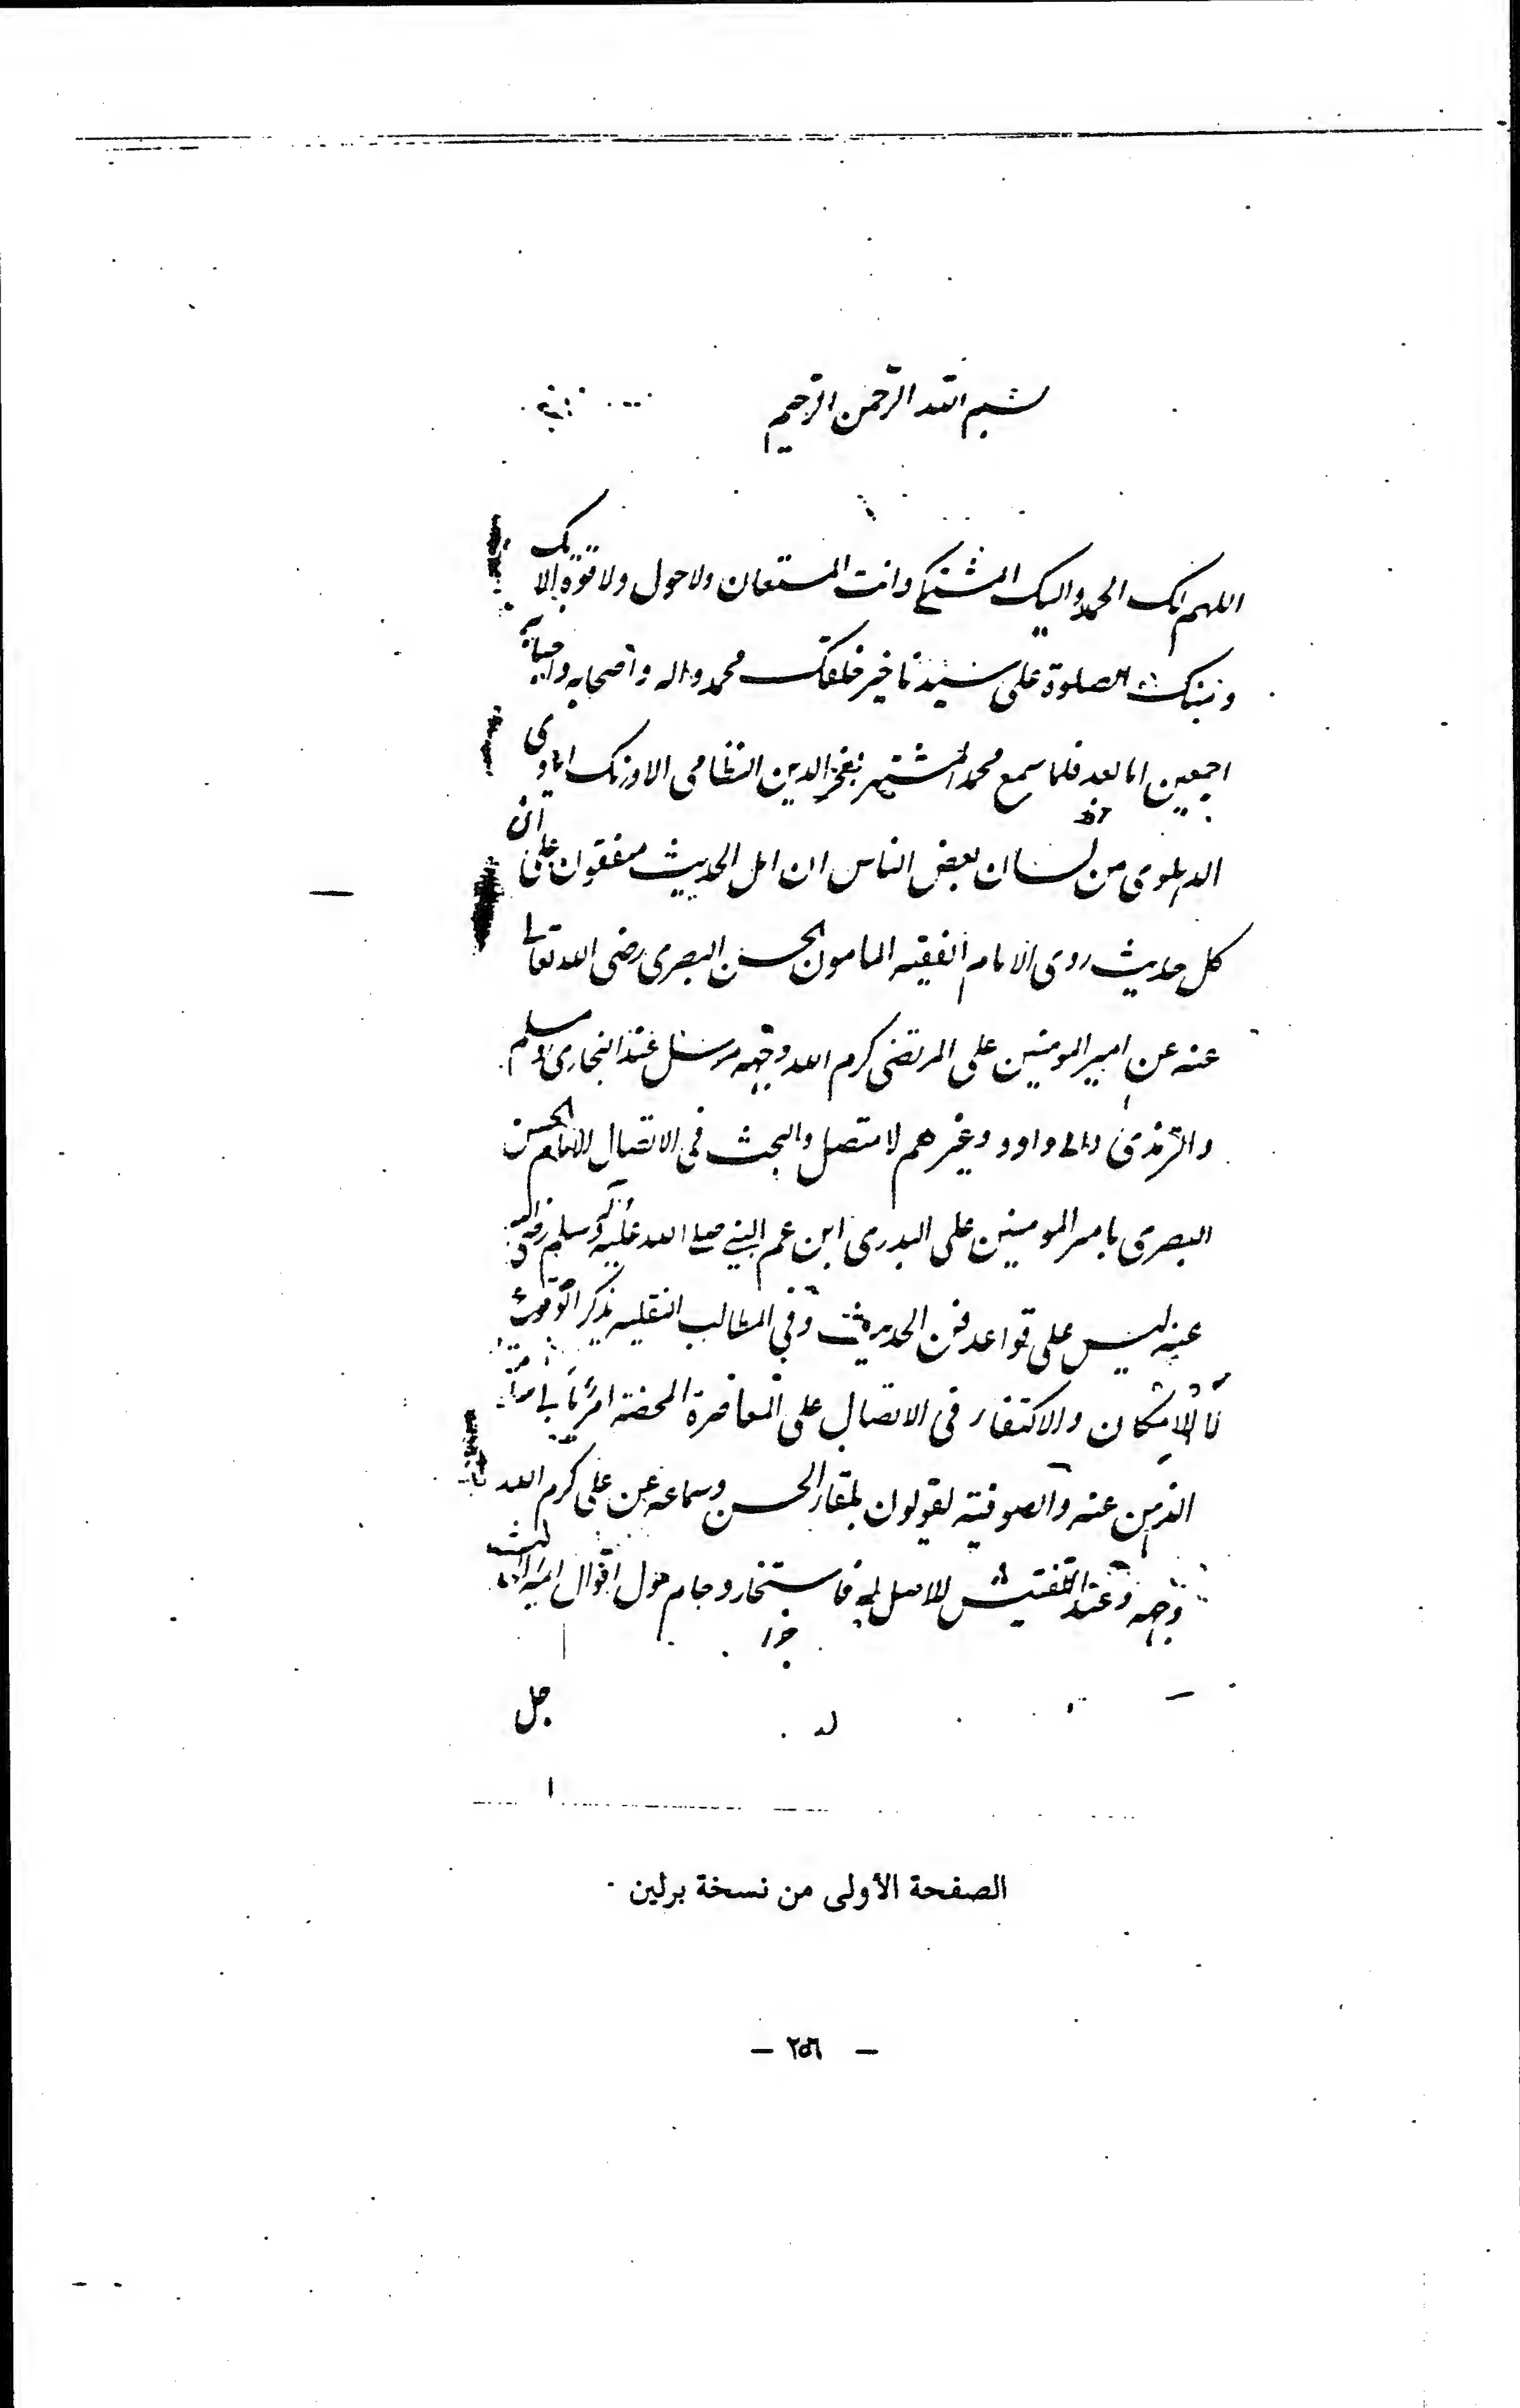 بسم الله الرحمن الرحيم
اللهم لك الحمد واليك المشتكى وانت المستعان ولا حول ولا قوة الا بك
ومنك الصلوة على سيدنا خير خلقك محمد واله واصحابه واحبابه
اجمعين اما بعد فلما سمع محمد المشتهر بفخر الدين النظامى الاورنك ابادى
الدهلوى من لسان بعض الناس ان اهل الحديث متفقون على ان
كل حديث روى الامام الفقيه المامون الحسن البصرى رضى الله تعالى
عنه عن امير المومنين على المرتضى كرم الله وجهه مرسل عند البخارى ومسلم
والترمذى وابى داود وغيرهم لا متصل والبحث فى الاتصال للامام الحسن
البصرى بامير المومنين على البدرى ابن عم النبى صلى الله عليه وسلم رضى الله
عنه ليس على قواعد فن الحديث وفى المطالب النقليه يذكر الوقوع
لا الامكان والاكتفاء فى الاتصال على المعاصرة المحضة امر
عنه والصوفية يقولون بلقاء الحسن وسماعه عن على كرم الله
وجهه وعند التفتيش لا اصل له فاستخار وحام حول اقوال ائمة
الصفحة الأولى من نسخة برلين
— ٢٥٦ —